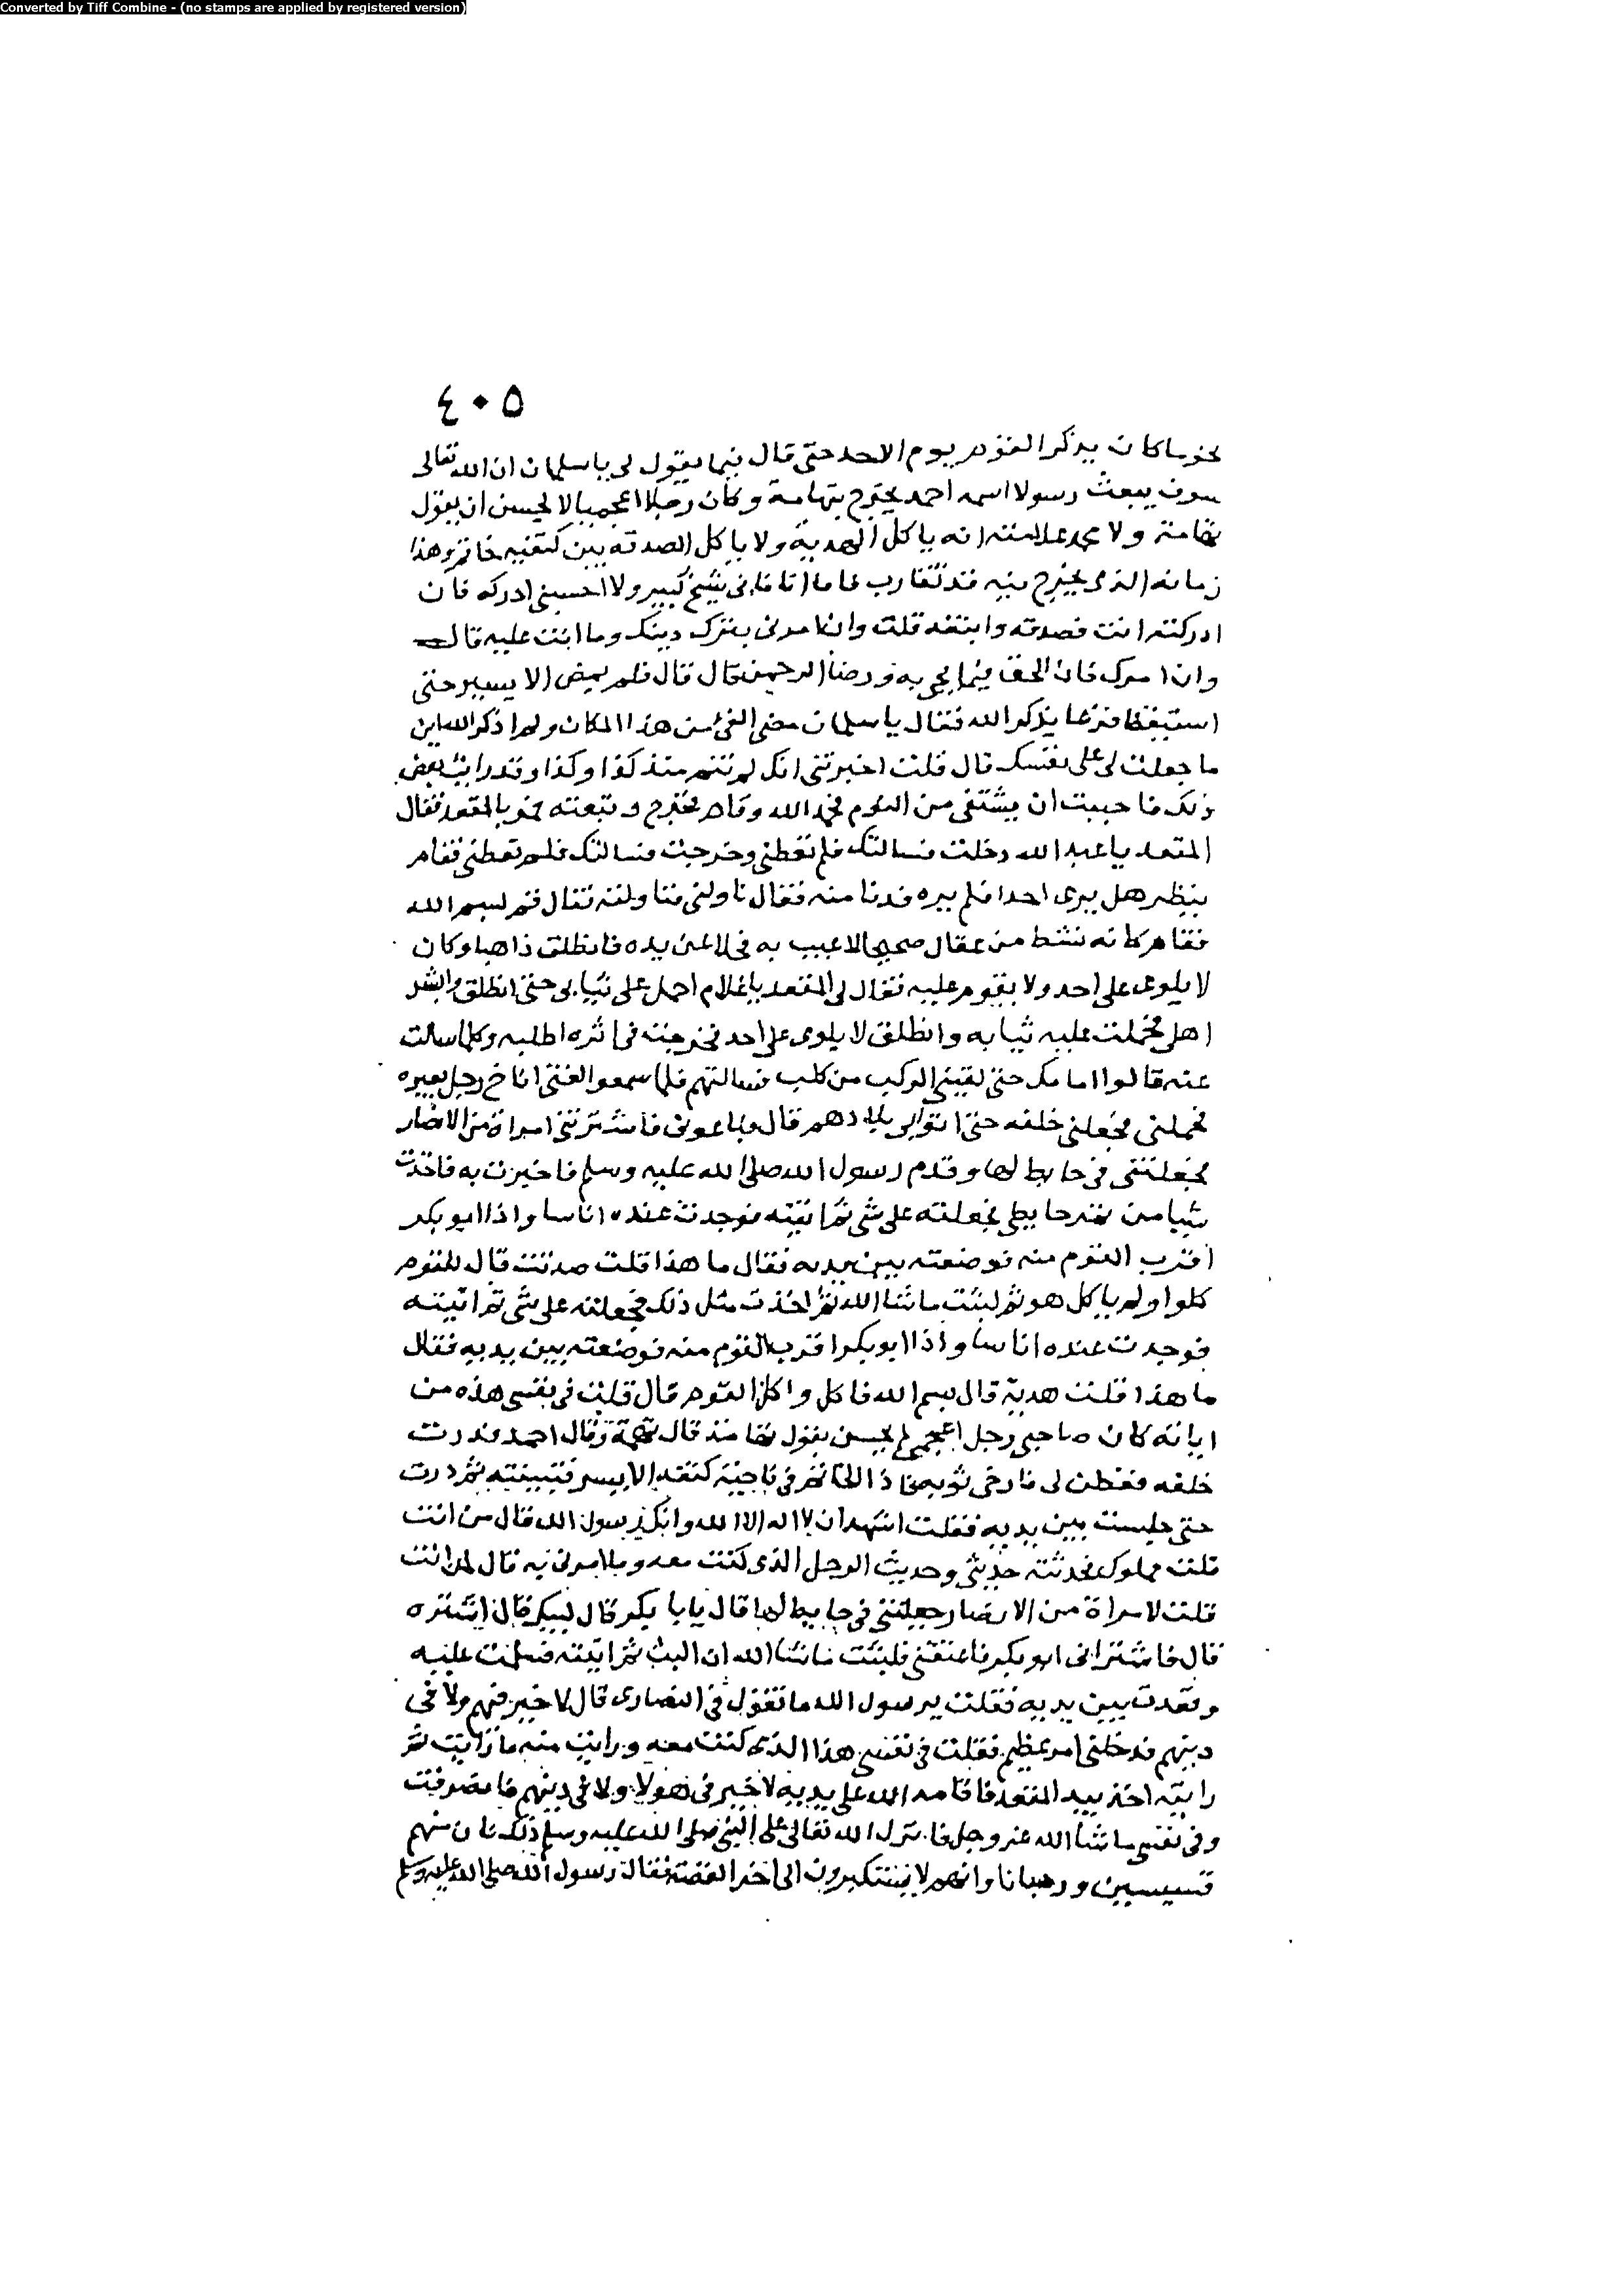 Converted by Tiff Combine - (no stamps are applied by registered version)
٤٠٥
نحو ما كان يذكر القوم يوم الاحد حتى قال فيما يقول لى يا سلمان ان الله تعالى
سوف يبعث رسولا اسمه احمد يخرج بتهامة وكان رجلا اعجميا لا يحسن ان يقول
تهامة ولا محمد علامته انه ياكل الهدية ولا ياكل الصدقة بين كتفيه خاتم وهذا
زمانه الذى يخرج فيه قد تقارب فاما انا فانى شيخ كبير ولا احسبنى ادركه فان
ادركته انت فصدقه واتبعه قلت وان امرنى بترك دينك وما انت عليه قال
وان امرك فان الحق فيما يجى به ورضا الرحمن قال قال فلم يمض الا يسير حتى
استيقظ فزعا يذكر الله فقال يا سلمان مضى الفئ من هذا المكان ولم اذكر الله اين
ما جعلت لى على نفسك قال قلت اخبرتنى انك لم تنم منذ كذا وكذا وقد رايت بعض
ذلك فاحببت ان يشتفى من النوم فحمد الله وقام فخرج وتبعته فمر بالمقعد فقال
المقعد يا عبد الله دخلت فسالتك فلم تعطنى وخرجت فسالتك فلم تعطنى فقام
ينظر هل يرى احدا فلم يره فدنا منه فقال ناولنى فناولته فقال قم بسم الله
فقام كانه نشط من عقال صحيحا لا عيب به فخلا عن يده فانطلق ذاهبا وكان
لا يلوى على احد ولا يقوم عليه فقال لى المقعد يا غلام احمل على ثيابى حتى انطلق وابشر
اهلى فحملت عليه ثيابه وانطلق لا يلوى على احد فخرجت فى اثره اطلبه وكلما سالت
عنه قالوا امامك حتى لقينى الركب من كلب فسالتهم فلما سمعوا الفتى اناخ رجل بعيره
فحملنى فجعلنى خلفه حتى اتوا بى بلادهم قال فباعونى فاشترتنى امراة من الانصار
فجعلتنى فى حايط لها وقدم رسول الله صلى الله عليه وسلم فاخبرت به فاخذت
شيا من تمر حايطى فجعلته على شى ثم اتيته فوجدت عنده اناسا واذا ابو بكر
اقرب القوم منه فوضعته بين يديه فقال ما هذا قلت صدقة قال للقوم
كلوا ولم ياكل هو ثم لبثت ما شا الله ثم اخذت مثل ذلك فجعلته على شى ثم اتيته
فوجدت عنده اناسا واذا ابو بكر اقرب القوم منه فوضعته بين يديه فقال
ما هذا قلت هدية قال بسم الله فاكل واكل القوم قال قلت فى نفسى هذه من
اياته كان صاحبى رجل اعجمى لم يحسن يقول تهامة قال تهمة وقال احمد فدرت
خلفه ففطن لى فارخى ثوبه فاذا الخاتم فى ناحية كتفه الايسر فتبينته ثم درت
حتى جلست بين يديه فقلت اشهد ان لا اله الا الله وانك رسول الله قال من انت
قلت مملوك فحدثته حديثى وحديث الرجل الذى كنت معه وما امرنى به قال لمن انت
قلت لامراة من الانصار جعلتنى فى حايط لها قال يا با بكر قال لبيك قال اشتره
قال فاشترانى ابو بكر فاعتقنى فلبثت ما شا الله ان البث ثم اتيته فسلمت عليه
وقعدت بين يديه فقلت يرسول الله ما تقول فى النصارى قال لا خير فيهم ولا فى
دينهم فدخلنى امر عظيم فقلت فى نفسى هذا الذى كنت معه ورايت منه ما رايت ثم
رايته اخذ بيد المقعد فاقامه الله على يديه لا خير فى هولا ولا فى دينهم فانصرفت
وفى نفسى ما شا الله عز وجل فانزل الله تعالى على النبى صلى الله عليه وسلم ذلك بان منهم
قسيسين ورهبانا وانهم لا يستكبرون الى اخر القصة فقال رسول الله صلى الله عليه وسلم